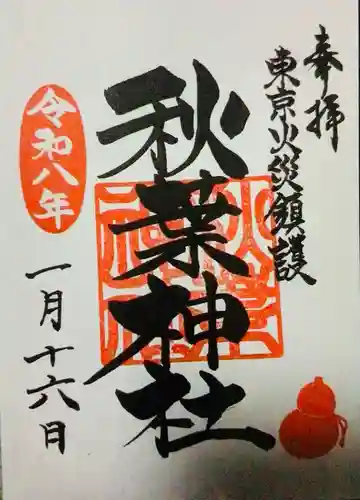 奉拝
東京火災鎮護
秋葉神社
令和八年
一月十六日